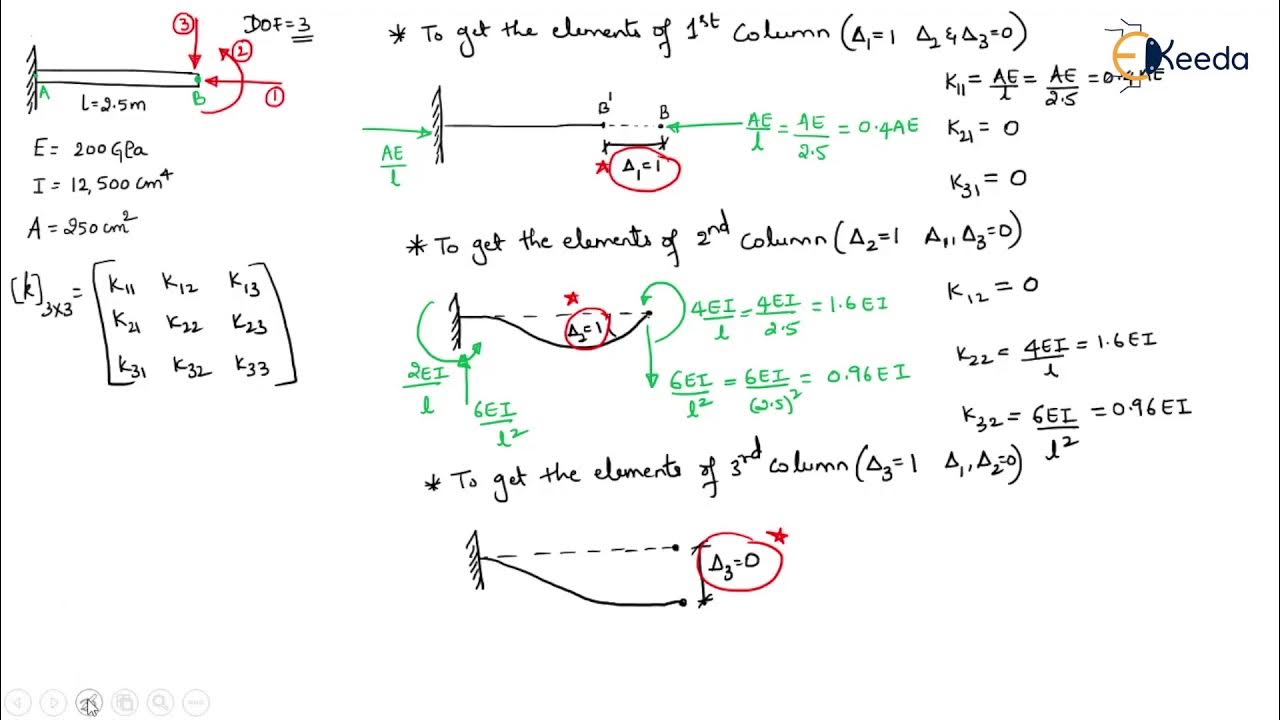 ③ DOF=3
②
A B ①
L=2.5m
E= 200 GPa
I = 12,500 cm⁴
A = 250 cm²
[k]₃ₓ₃ = [K₁₁ K₁₂ K₁₃
K₂₁ K₂₂ K₂₃
K₃₁ K₃₂ K₃₃]
* To get the elements of 1st Column (Δ₁=1 Δ₂ & Δ₃=0)
B' B
AE/l
AE/l = AE/2.5 = 0.4AE
★ Δ₁=1
K₁₁ = AE/l = AE/2.5 = 0.4AE
K₂₁ = 0
K₃₁ = 0
EKeeda
* To get the elements of 2nd column (Δ₂=1 Δ₁, Δ₃=0)
★ Δ₂=1
4EI/l = 4EI/2.5 = 1.6EI
2EI/l
6EI/l²
6EI/l² = 6EI/(2.5)² = 0.96EI
K₁₂ = 0
K₂₂ = 4EI/l = 1.6EI
K₃₂ = 6EI/l² = 0.96EI
* To get the elements of 3rd column (Δ₃=1 Δ₁, Δ₂=0)
Δ₃=0 ★